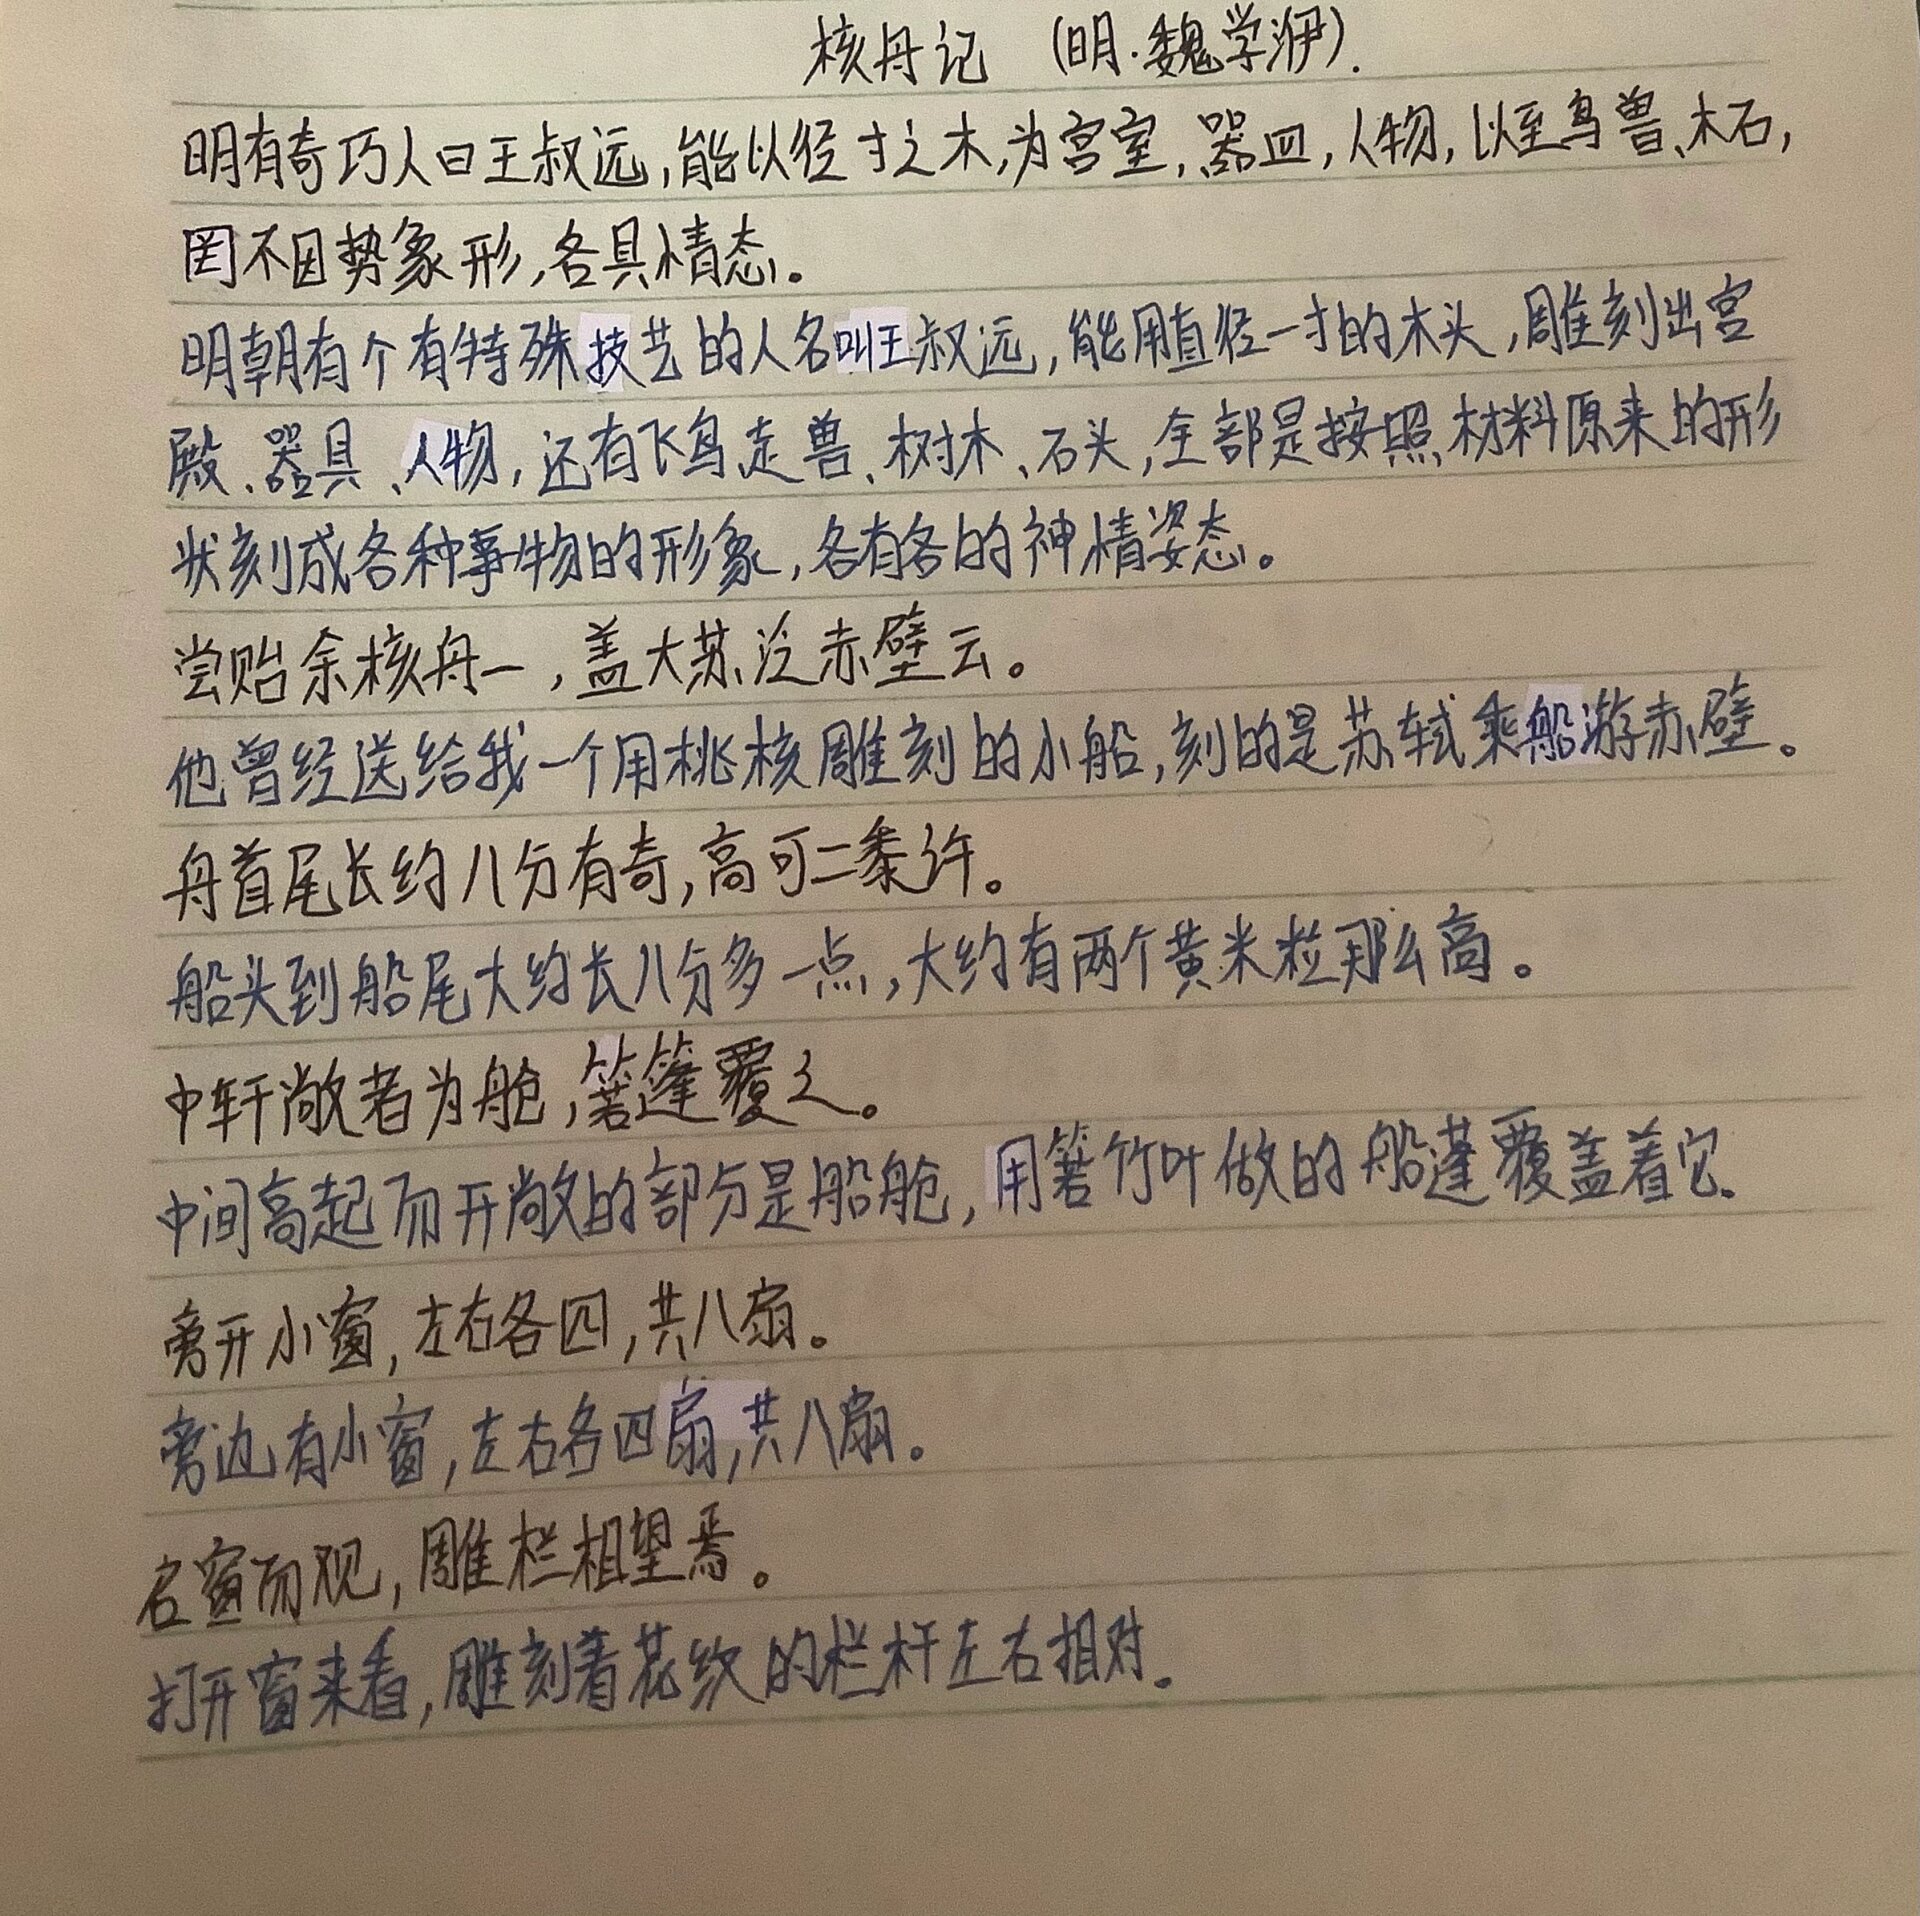 核舟记 (明·魏学洢).
明有奇巧人曰王叔远,能以径寸之木,为宫室,器皿,人物,以至鸟兽、木石,
罔不因势象形,各具情态。
明朝有个有特殊技艺的人名叫王叔远,能用直径一寸的木头,雕刻出宫
殿、器具、人物,还有飞鸟走兽、树木、石头,全部是按照材料原来的形
状刻成各种事物的形象,各有各的神情姿态。
尝贻余核舟一,盖大苏泛赤壁云。
他曾经送给我一个用桃核雕刻的小船,刻的是苏轼乘船游赤壁。
舟首尾长约八分有奇,高可二黍许。
船头到船尾大约长八分多一点,大约有两个黄米粒那么高。
中轩敞者为舱,箬篷覆之。
中间高起而开敞的部分是船舱,用箬竹叶做的船篷覆盖着它。
旁开小窗,左右各四,共八扇。
旁边有小窗,左右各四扇,共八扇。
启窗而观,雕栏相望焉。
打开窗来看,雕刻着花纹的栏杆左右相对。